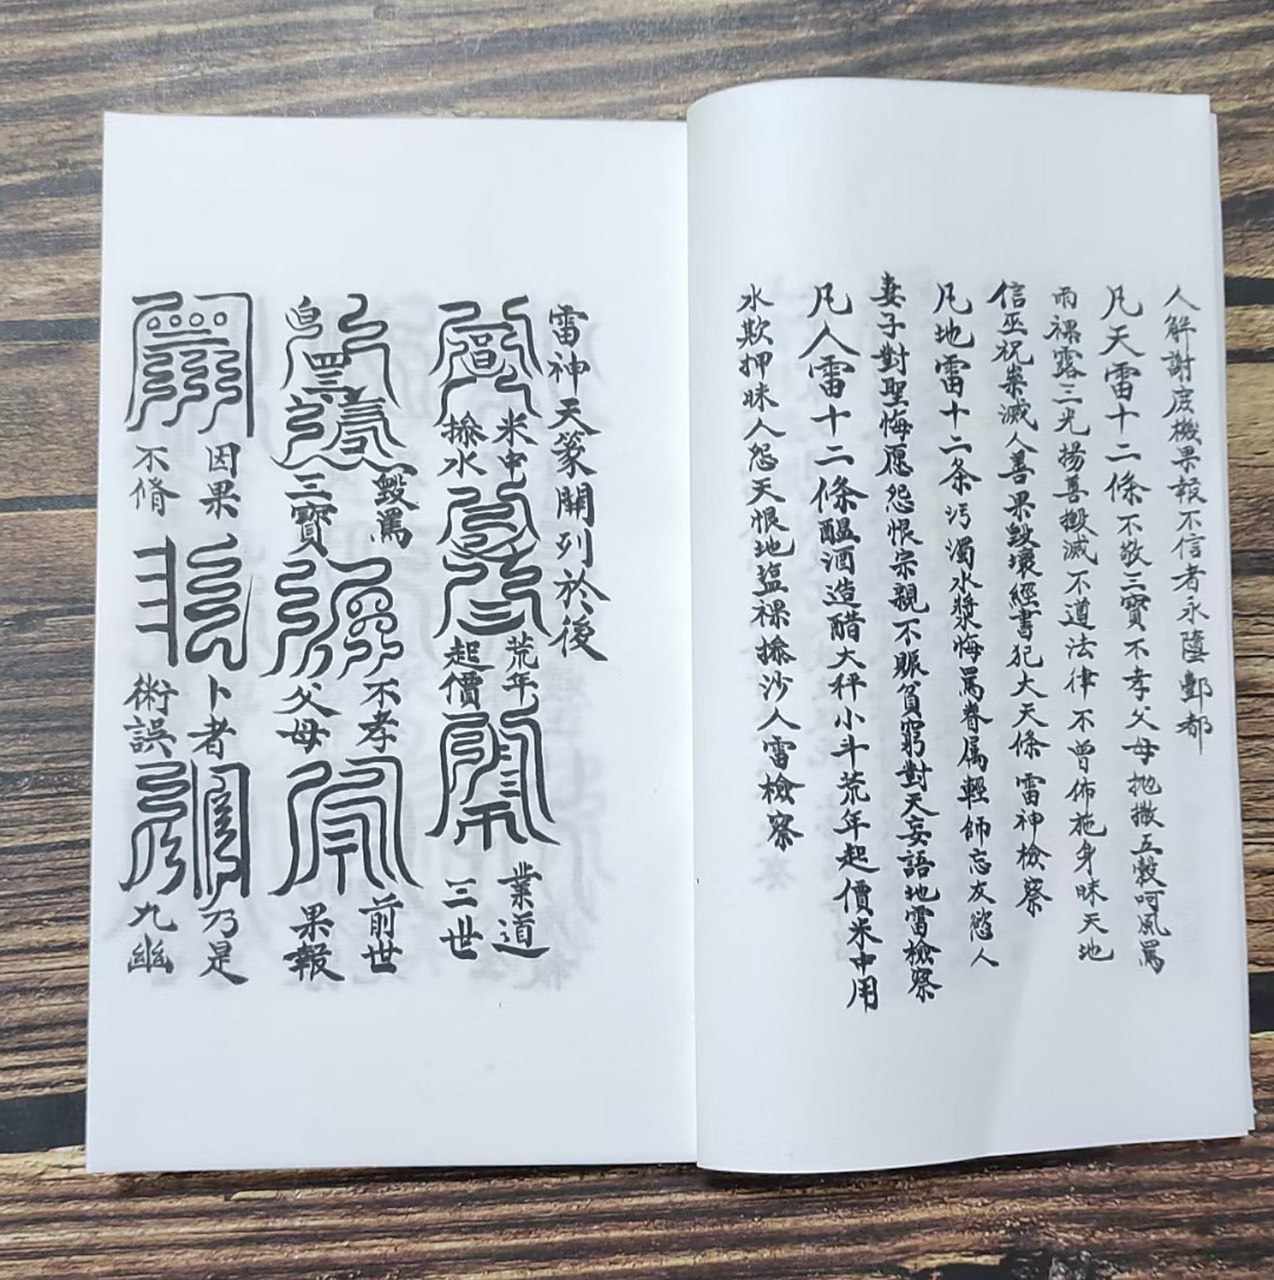 人解謝度機果報不信者永墮酆都
凡天雷十二條不敬三寶不孝父母抛撒五穀呵風罵
雨裸露三光揚善搬滅不道法律不曾佈施身昧天地
信巫祝祟滅人善果毀壞經書犯大天條雷神檢察
凡地雷十二条污濁水漿悔罵眷属輕師忘友慾人
妻子對聖悔愿怨恨宗親不賑貧窮對天妄語地雷檢察
凡人雷十二條醖酒造醋大秤小斗荒年起價米中用
水欺押昧人怨天恨地盐裸搽沙人雷檢察
雷神天篆開列於後
米中
搽水
荒年
起價
業道
三世
毀罵
三寶
不孝
父母
前世
果報
因果
不脩
卜者
術誤
乃是
九幽